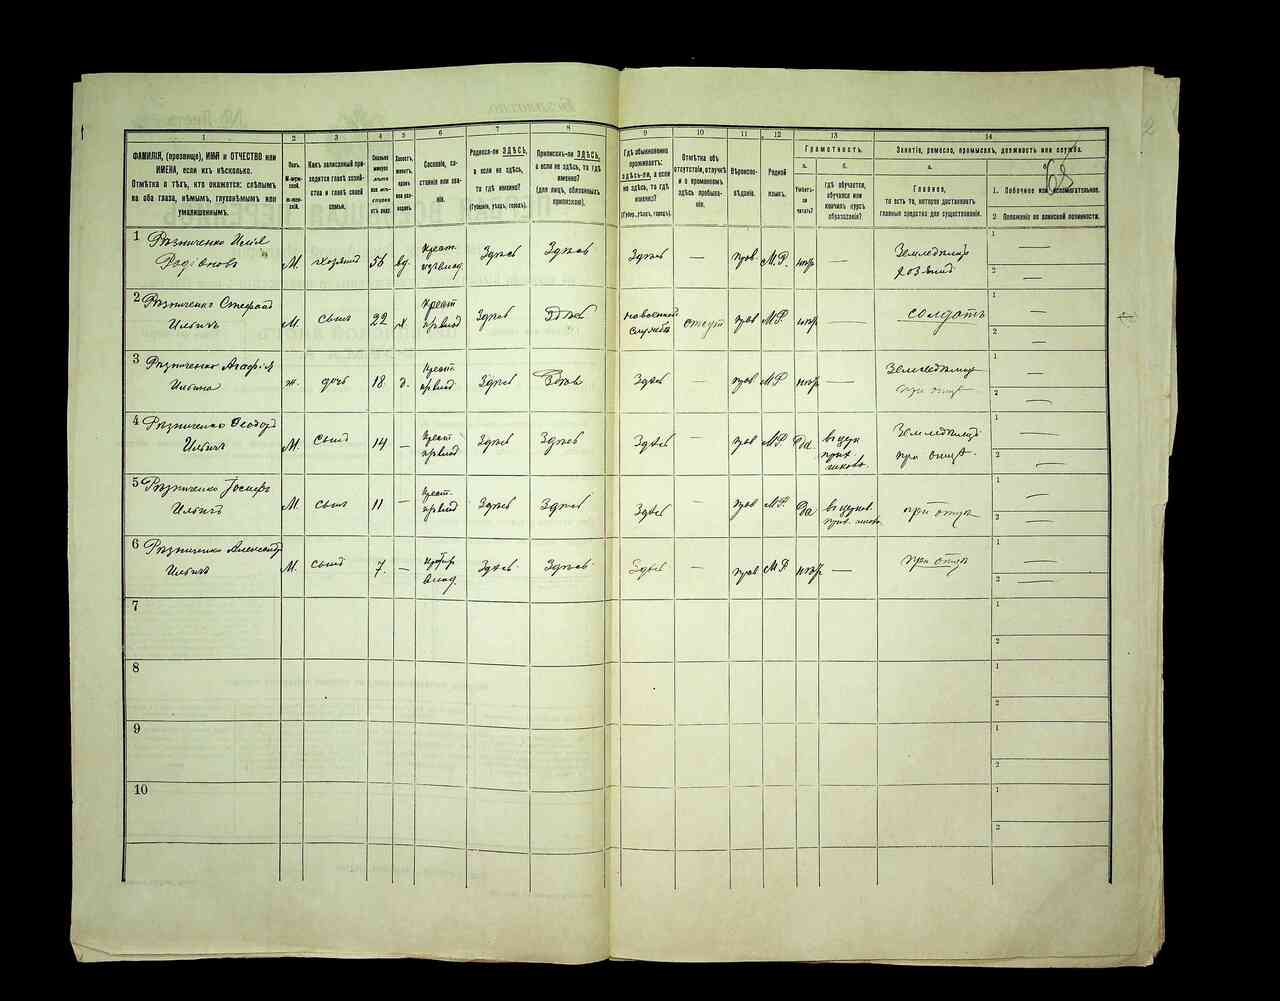 1
2
3
4
5
6
7
8
9
10
11
12
13
14
ФАМИЛІЯ, (прозвище), ИМЯ и ОТЧЕСТВО или
ИМЕНА, если ихъ нѣсколько.
Отмѣтка о тѣхъ, кто окажется: слѣпымъ
на оба глаза, нѣмымъ, глухонѣмымъ или
умалишеннымъ.
Полъ.
М-мужской.
Ж-женскій.
Какъ записанный приходится главѣ хозяйства и главѣ своей семьи.
Сословіе, состояніе или званіе.
Родился-ли ЗДѢСЬ,
а если не здѣсь,
то гдѣ именно?
(Губернія, уѣздъ, городъ).
Приписанъ-ли ЗДѢСЬ,
а если не здѣсь, то гдѣ
именно?
(для лицъ, обязанныхъ
припискою).
Гдѣ обыкновенно
проживаетъ:
здѣсь-ли, а если
не здѣсь, то гдѣ
именно?
(Губер., уѣздъ, городъ).
Отмѣтка объ
отсутствіи, отлучкѣ
и о временномъ
здѣсь пребываніи.
Вѣроисповѣданіе.
Родной
языкъ.
Грамотность.
а.
Умѣетъ-ли
читать?
б.
гдѣ обучается,
обучался или
кончилъ курсъ
образованія?
Занятіе, ремесло, промыселъ, должность или служба.
а.
Главное,
то есть то, которое доставляетъ
главныя средства для существованія.
68
1. Побочное или вспомогательное.
2 Положеніе по воинской повинности.
1
Рѣзниченко Илія
Родіоновъ
М.
хозяинъ
56
вд.
Здѣсь
Здѣсь
Здѣсь
—
прав.
М.Р.
нѣтъ
—
Земледѣлецъ
хозяинъ
1 —
2 —
2
Рѣзниченко Стефанъ
Ильичъ
М.
сынъ
22
х.
Здѣсь
Здѣсь
на военной
службѣ
отсут
прав
М.Р
нѣтъ
—
солдатъ
1
2 —
3
Рѣзниченко Агафія
Ильина
ж.
дочь
18
д.
Здѣсь
Здѣсь
Здѣсь
—
прав
М.Р
нѣтъ
—
Земледѣлецъ
при отцѣ
1 —
2 —
4
Рѣзниченко Ѳеодоръ
Ильичъ
М.
сынъ
14
—
Здѣсь
Здѣсь
Здѣсь
—
прав
М.Р.
Да
въ церк
прих.
школѣ.
Земледѣлецъ
при отцѣ.
1 —
2 —
5
Рѣзниченко Іосифъ
Ильичъ
М.
сынъ
11
—
Здѣсь
Здѣсь
Здѣсь
—
прав
М.Р.
Да
въ церков.
прих. школѣ
при отцѣ
1 —
2 —
6
Рѣзниченко Александръ
Ильичъ
М.
сынъ
7.
—
Здѣсь
Здѣсь
Здѣсь
—
прав
М.Р
нѣтъ
—
при отцѣ
1 —
2 —
7
1
2
8
1
2
9
1
2
10
1
2